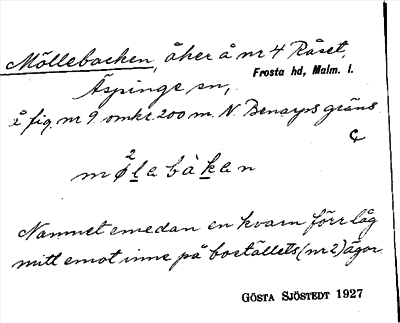 Möllebacken, åker å nr 4 Råset,
Frosta hd, Malm. l.
Äspinge sn,
å fig. nr 9 omkr. 200 m. N. Benarps gräns
C
2
møləbàkən
Namnet emedan en kvarn förr låg
mitt emot inne på boställets (nr 2) ägor.
GÖSTA SJÖSTEDT 1927